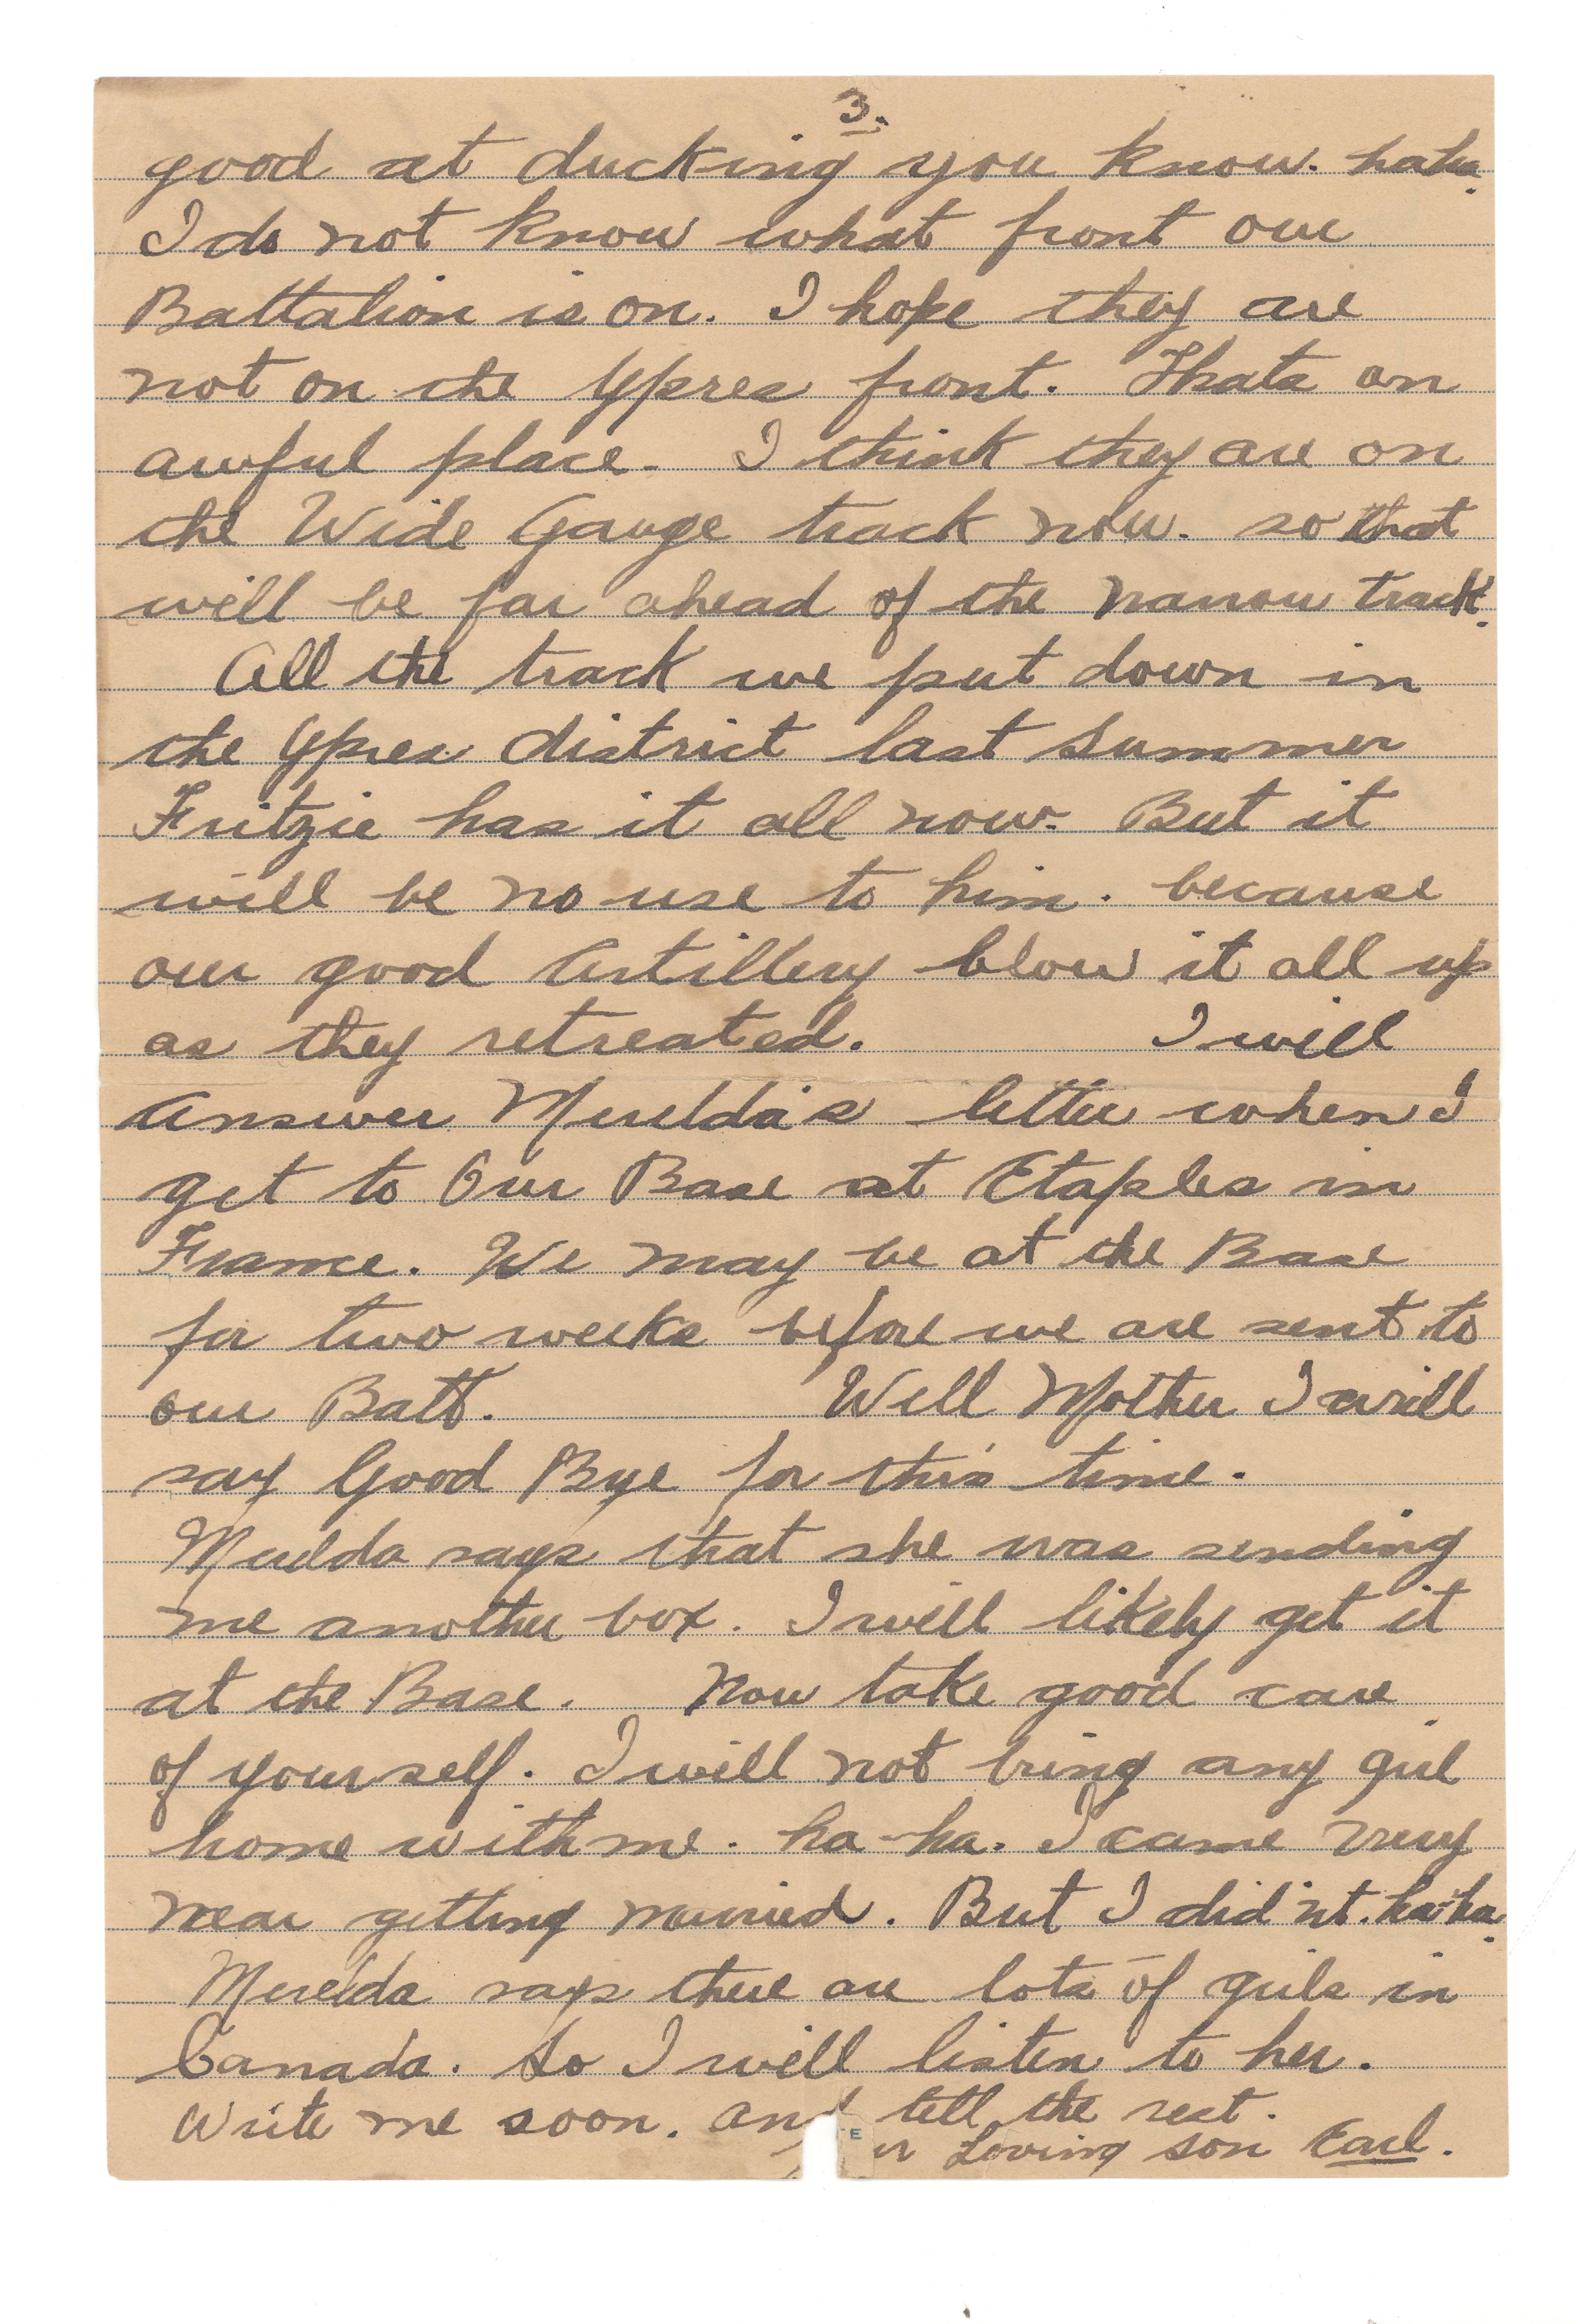 3.
good at ducking you know. haha.
I do not know what front our
Battalion is on. I hope they are
not on the Ypres front. Thats an
awful place. I think they are on
the Wide Gauge track now. so that
will be far ahead of the narrow track.
All the track we put down in
the Ypres district last summer
Fritzie has it all now. But it
will be no use to him. because
our good Artillery blow it all up
as they retreated. I will
Answer Merelda's letter when I
get to Our Base at Etaples in
France. We may be at the Base
for two weeks before we are sent to
our Batt. Well Mother I will
say Good Bye for this time.
Merelda says that she was sending
me another box. I will likely get it
at the Base. Now take good care
of yourself. I will not bring any girl
home with me. ha-ha. I came very
near getting married. But I did'nt. ha-ha.
Merelda says there are lots of girls in
Canada. So I will listen to her.
Write me soon. and tell the rest.
Loving son Earl.